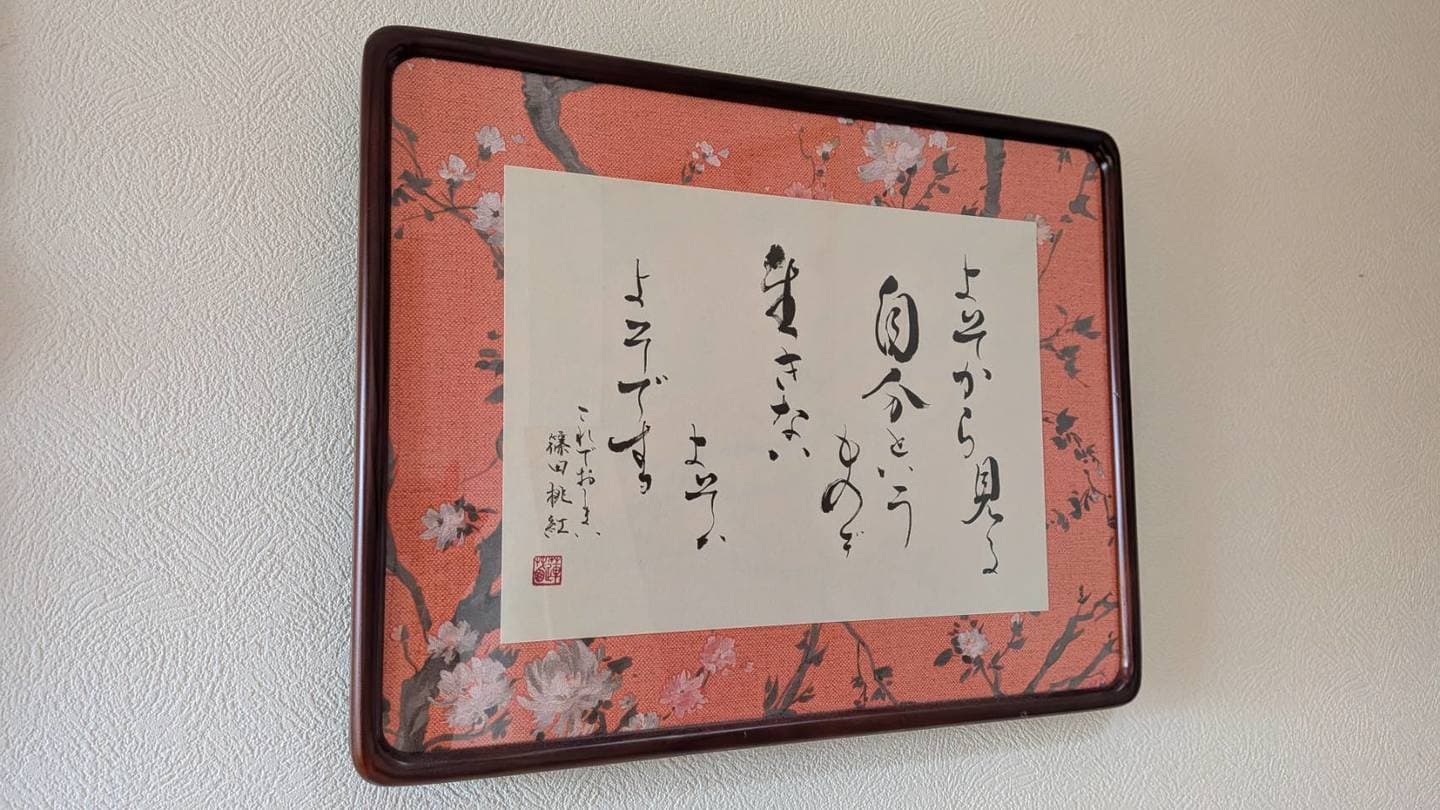 よそから見る
自分という
もので
生きない
よそは
よそです
これでおしまい
篠田桃紅